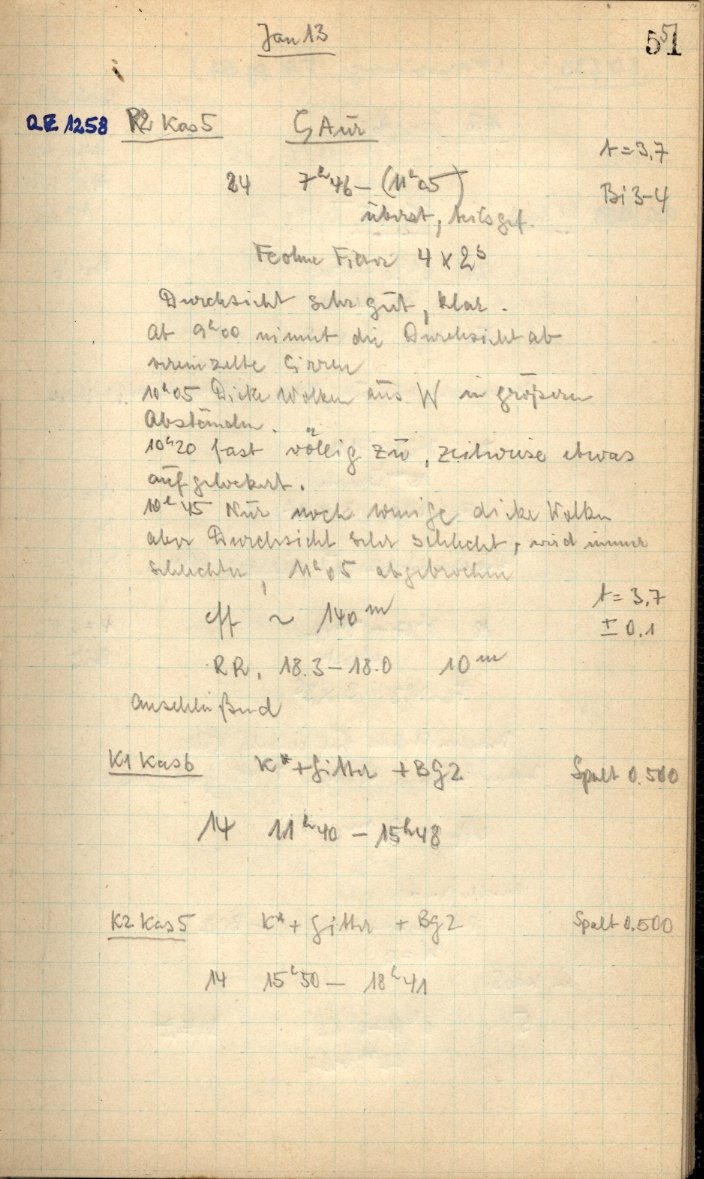 Jan 13
551
QE 1258 R2 Kas5 ζ Aur
t = 3,7
24 7ʰ46 – (11ʰ05)
Bi 3-4
überst, teilsgef.
Fe ohne Filter 4 x 2ˢ
Durchsicht sehr gut, klar.
Ab 9ʰ00 nimmt die Durchsicht ab
vereinzelte Cirren
10ʰ05 Dicke Wolken aus W in größeren
Abständen.
10ʰ20 fast völlig zu, zeitweise etwas
aufgelockert.
10ʰ45 Nur noch wenige dicke Wolken
aber Durchsicht sehr schlecht, wird immer
schlechter, 11ʰ05 abgebrochen
t = 3,7
eff ~ 140ᵐ
± 0.1
RR, 18.3 – 18.0 10ᵐ
Anschließend
K1 Kas6 K* + Gitter + BG2 Spalt 0.500
14 11ʰ40 – 15ʰ48
K2 Kas5 K* + Gitter + BG2 Spalt 0.500
14 15ʰ50 – 18ʰ41